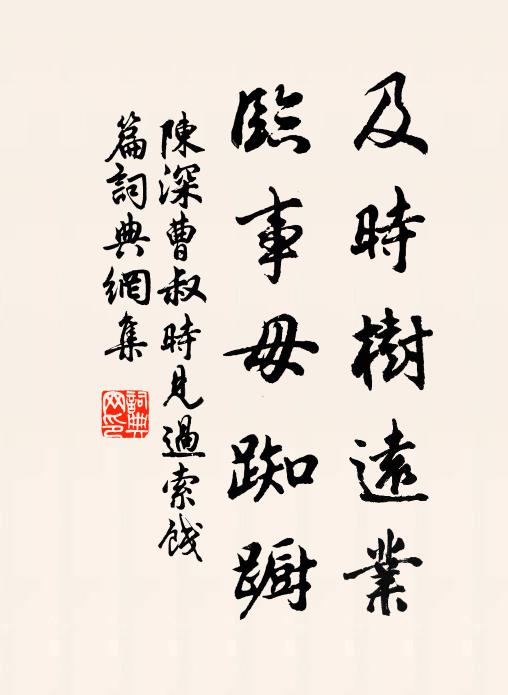 及時樹遠業
臨事毋踟蹰
陳深曹叔時見過索餞
篇詞典網集
詞典網印